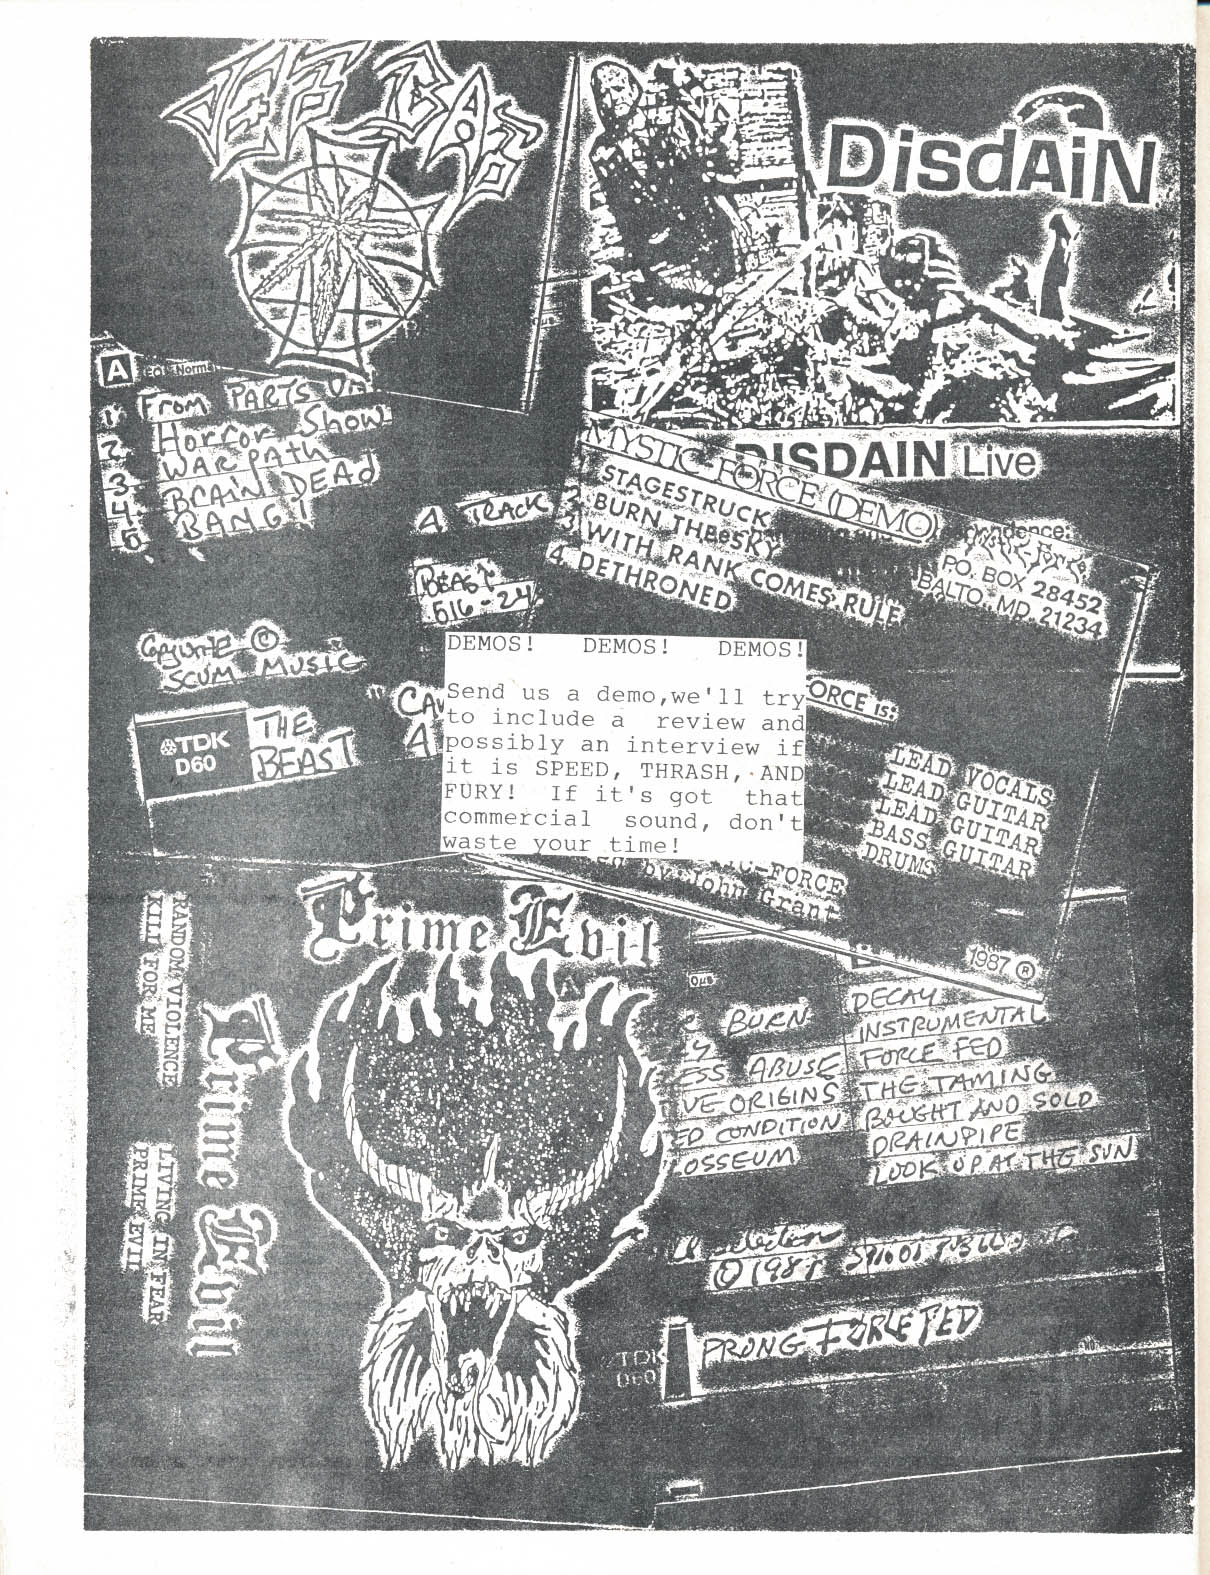 THE BEAST
DisdAiN
A
EQ Normal
1. From PARTS UN
2. Horror Show
3. WAR PAth
4. BRAiN DEAd
5. BANG!
DISDAIN Live
MYSTIC-FORCE (DEMO)
1. STAGESTRUCK
2. BURN THEeSKY
3. WITH RANK COMES RULE
4. DETHRONED
Mystic-Force
P.O. BOX 28452
BALTO. MD. 21234
4 TRACK
BEAST
516-24
Copywrite ©
SCUM MUSIC
TDK
D60
THE
BEAST
"CAV
DEMOS! DEMOS! DEMOS!
Send us a demo,we'll try
to include a review and
possibly an interview if
it is SPEED, THRASH, AND
FURY! If it's got that
commercial sound, don't
waste your time!
ORCE IS:
LEAD VOCALS
LEAD GUITAR
LEAD GUITAR
BASS GUITAR
DRUMS
IC-FORCE
by John Grant
1987 ®
Prime Evil
RANDOM VIOLENCE
KILL FOR ME
LIVING IN FEAR
PRIME EVIL
Prime Evil
BURN
ESS ABUSE
VE ORIGINS
ED CONDITION
LOSSEUM
DECAY
INSTRUMENTAL
FORCE FED
THE TAMING
BOUGHT AND SOLD
DRAINPIPE
LOOK UP AT THE SUN
© 1987
TDK
D60
PRONG FORCE FED